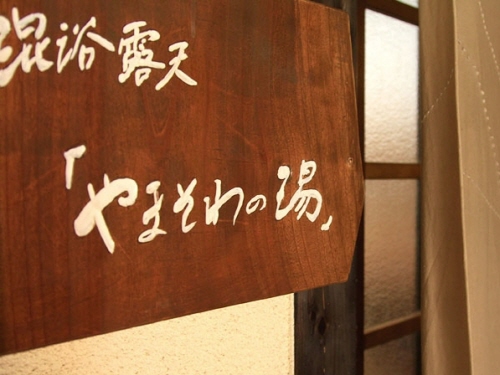 混浴露天
「やまそわの湯」